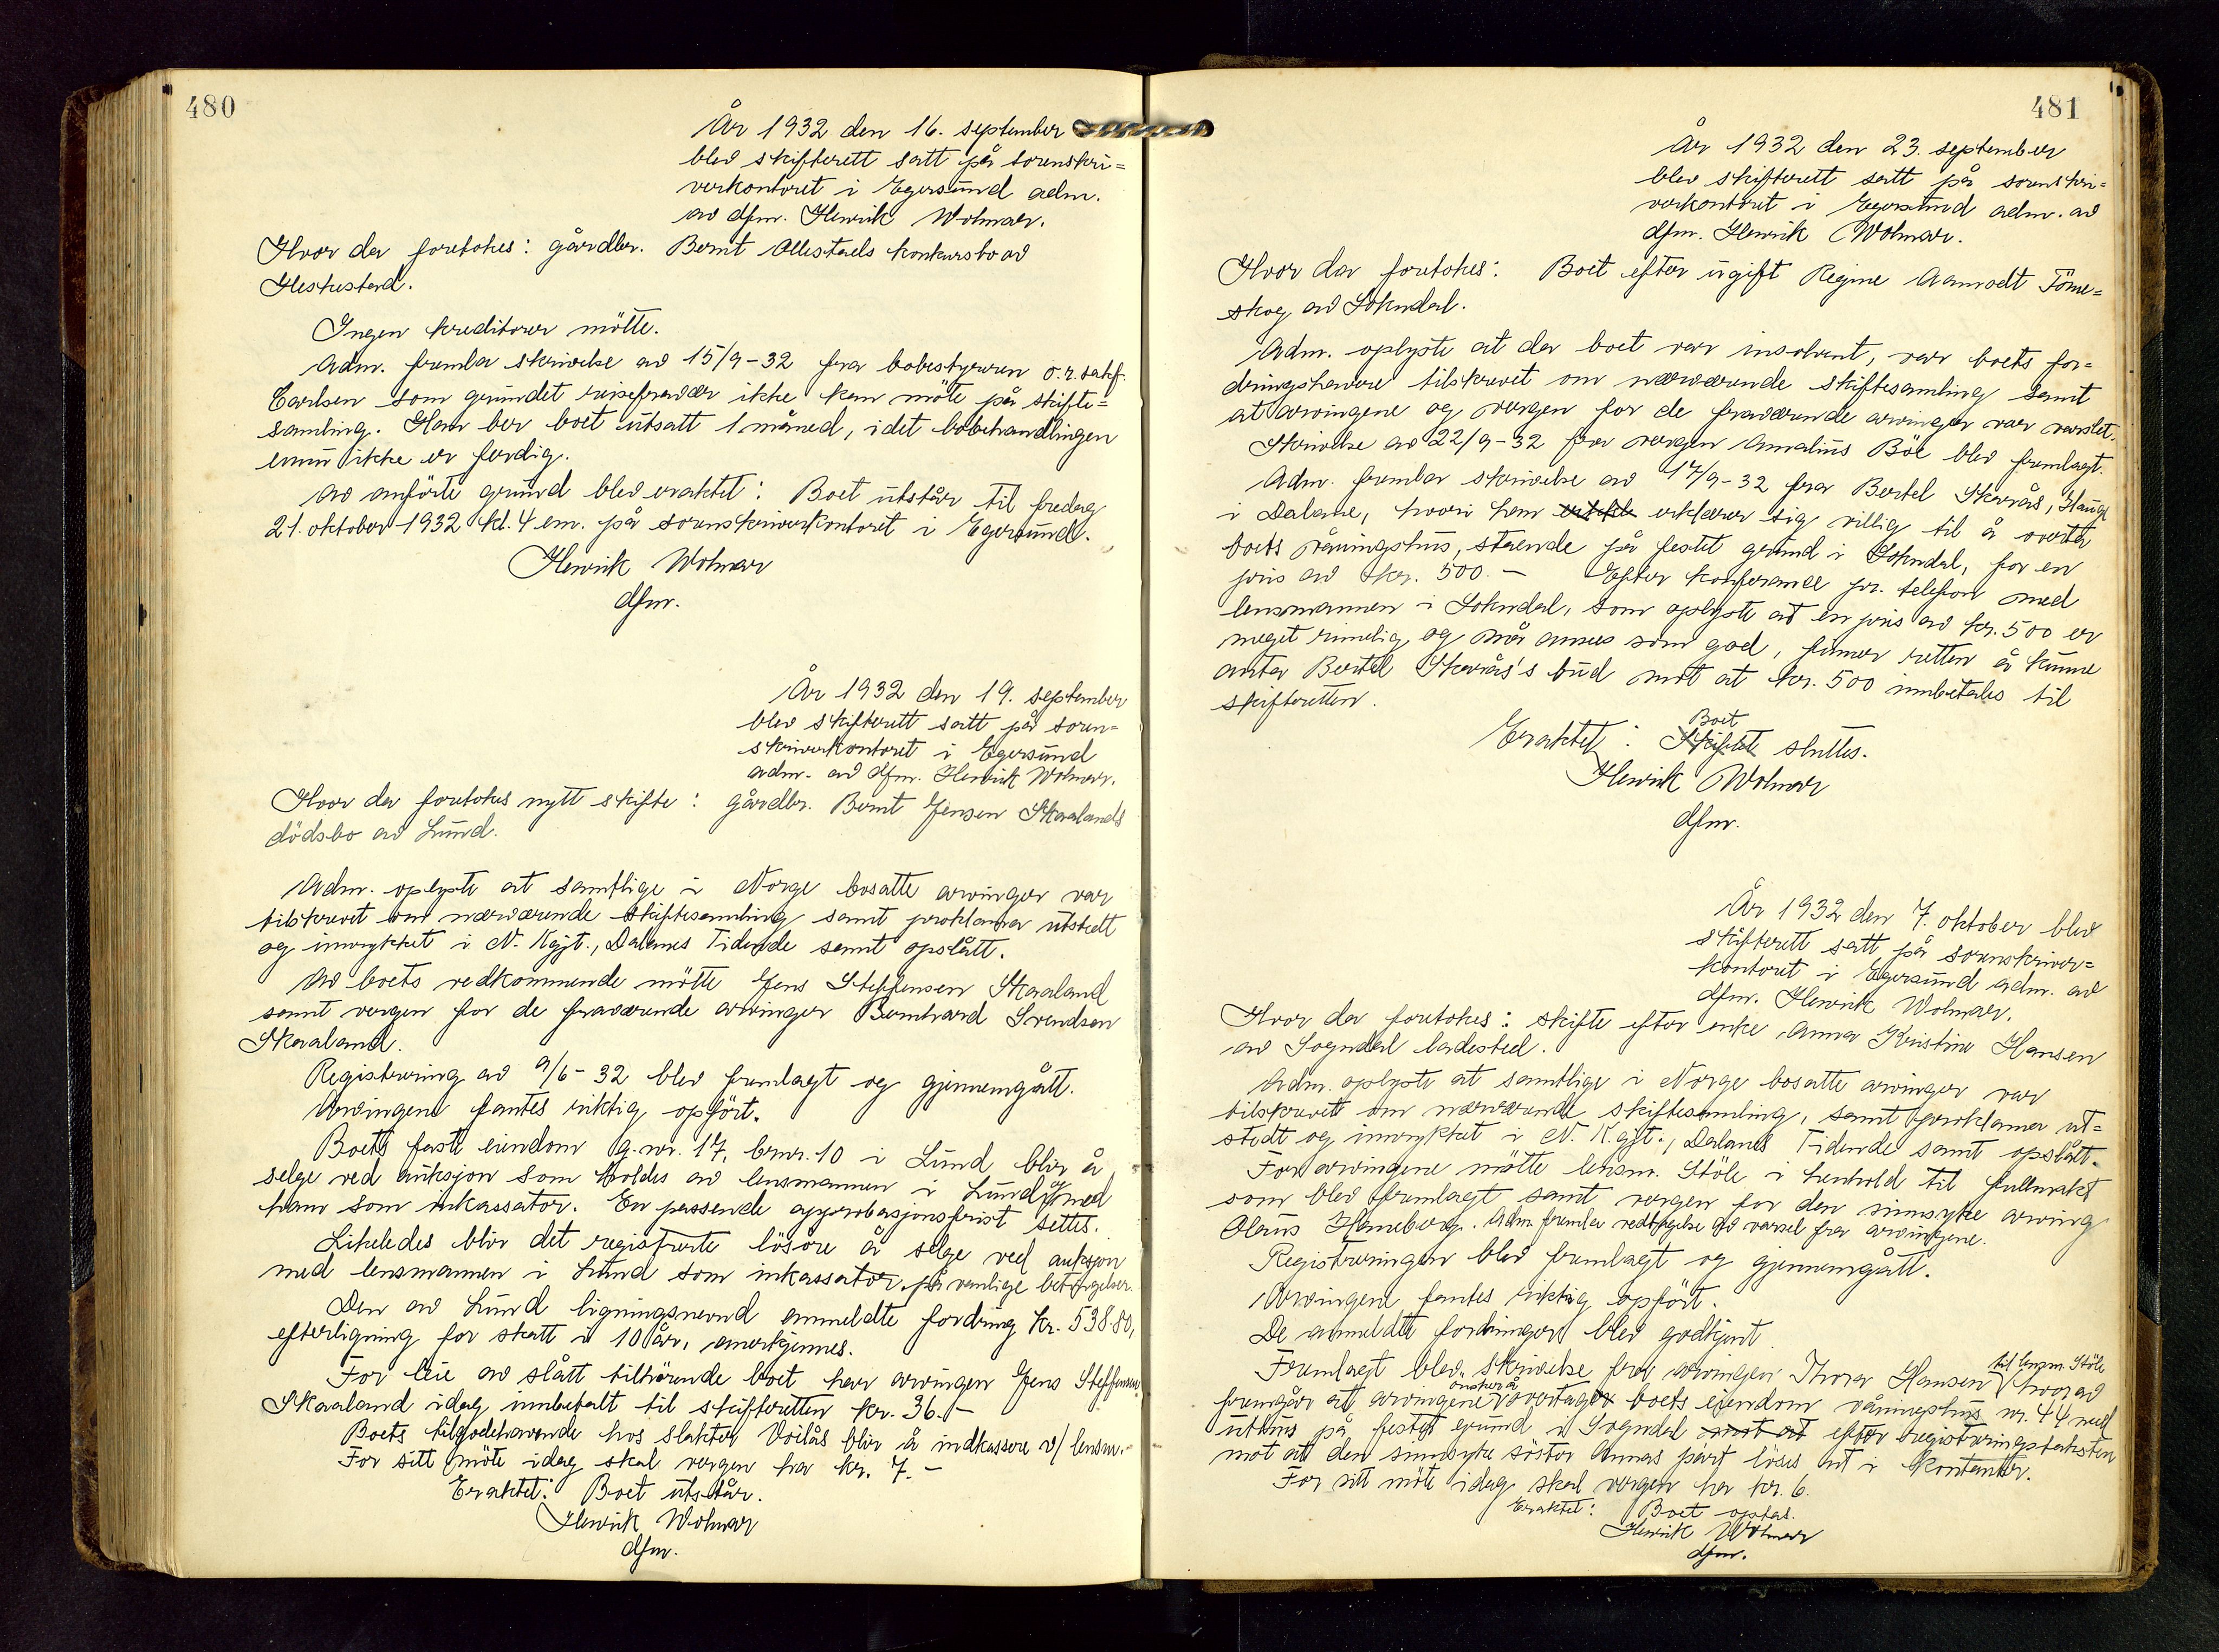 480
År 1932 den 16. september
blev skifterett satt på sorenskri=
verkontoret i Egersund adm.
av dfm. Henrik Wolmar.
Hvor da foretokes: gårdbr. Bernt Ollestads konkursbo av
Heskestad.
Ingen kreditorer møtte.
Adm. fremla skrivelse av 15/9-32 fra bobestyreren o.r.sakf.
Carlsen som grundet reisefravær ikke kan møte på skifte=
samling. Han ber boet utsatt 1 måned, idet bobehandlingen
ennu ikke er ferdig.
Av anførte grund blev eraktet: Boet utstår til fredag
21. oktober 1932 kl. 4 em. på sorenskriverkontoret i Egersund.
Henrik Wolmar
dfm.
År 1932 den 19. september
blev skifterett satt på soren=
skriverkontoret i Egersund
adm. av dfm. Henrik Wolmar.
Hvor da foretokes nytt skifte: gårdbr. Bernt Jensen Skaalands
dödsbo av Lund.
Adm. oplyste at samtlige i Norge bosatte arvinger var
tilskrevet om nærværende skiftesamling samt proklama utstedt
og innrykket i N. Kgjt., Dalanes Tidende samt opslått.
Av boets vedkommende møtte Jens Steffensen Skaaland
samt vergen for de fraværende arvinger Bernhard Svendsen
Skaaland.
Registrering av 9/6-32 blev fremlagt og gjennemgått.
Arvingene fantes riktig opført.
Boets faste eiendom g.nr. 17, br.nr. 10 i Lund blir å
selge ved auksjon som holdes av lensmannen i Lund og med
ham som inkassator. En passende approbasjonsfrist settes.
Likeledes blir det registrerte løsøre å selge ved auksjon
med lensmannen i Lund som inkassator på vanlige betingelser.
Den av Lund ligningsnevnd anmeldte fordring kr. 538.80,
efterligning for skatt i 10 år, anerkjennes.
For leie av slått tilhörende boet har arvingen Jens Steffensen
Skaaland idag innbetalt til skifteretten kr. 36.-
Boets tilgodehavende hos slakter Voilås blir å indkassere v/ lensm.
For sitt møte idag skal vergen ha kr. 7.-
Eraktet: Boet utstår.
Henrik Wolmar
dfm.
481
År 1932 den 23. september
blev skifterett satt på sorenskri=
verkontoret i Egersund adm. av
dfm. Henrik Wolmar.
Hvor da foretokes: Boet efter ugift Regine Aamodt
skog av Sokndal.
Adm. oplyste at da boet var insolvent, var boets for=
dringshavere tilskrevet om nærværende skiftesamling samt
at arvingene og vergen for de fraværende arvinger var varslet.
Skrivelse av 22/9-32 fra vergen Annanius Böe blev fremlagt.
Adm. fremla skrivelse av 17/9-32 fra Bertel Skarås, Hauge
i Dalane, hvori han erklærer sig villig til å overta
boets våningshus, stående på festet grund i Sokndal, for en
pris av kr. 500.- Efter konferanse pr. telefon med
lensmannen i Sokndal, som oplyste at en pris av kr. 500 er
meget rimelig og må ansees som god, finner retten å kunne
anta Bertel Skarås's bud mot at kr. 500 innbetales til
skifteretten.
Eraktet: Boet sluttes.
Henrik Wolmar
dfm.
År 1932 den 7. oktober blev
skifterett satt på sorenskriver=
kontoret i Egersund adm. av
dfm. Henrik Wolmar.
Hvor da foretokes: skifte efter enke Anna Kristine Hansen
av Sogndal ladested.
Adm. oplyste at samtlige i Norge bosatte arvinger var
tilskrevet om nærværende skiftesamling, samt proklama ut=
stedt og innrykket i N. K.gjt., Dalanes Tidende samt opslått.
For arvingene møtte lensm. Støle i henhold til fullmakt
som blev fremlagt samt vergen for den sinnsyke arving
Olaus Hanneberg. Adm. fremla vedtagelse av varsel fra arvingene.
Registreringen blev fremlagt og gjennemgått.
Arvingene fantes riktig opført.
De anmeldte fordringer blev godkjent.
Fremlagt blev skrivelse fra arvingen Thora Hansen til lensm. Støle hvorav
fremgår at arvingene ønsker å overtage boets eiendom våningshus nr. 44 med
uthus på festet grund i Sogndal efter registreringstaksten
mot at den sinnsyke søster Annas part løses ut i kontanter.
For sitt møte idag skal vergen ha kr. 6.
Eraktet: Boet optas.
Henrik Wolmar
dfm.